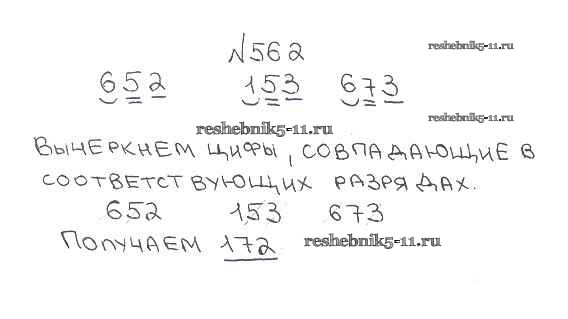 №562
reshebnik5-11.ru
652 153 673
reshebnik5-11.ru
reshebnik5-11.ru
Вычеркнем цифры, совпадающие в
соответствующих разрядах.
652 153 673
Получаем 172
reshebnik5-11.ru